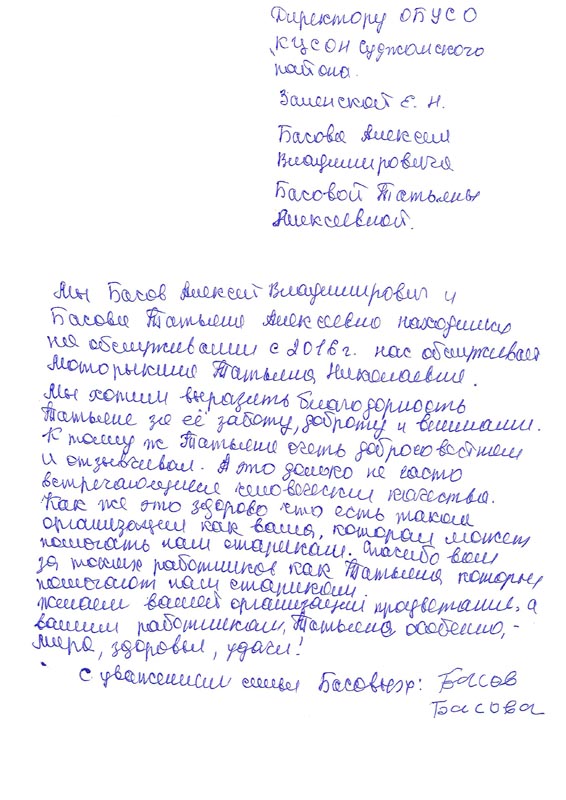 Директору ОБУСО
КЦСОН Суджанского
района.
Заленской Е. Н.
Басова Алексея
Владимировича
Басовой Татьяны
Алексеевной.
Мы Басов Алексей Владимирович и
Басова Татьяна Алексеевна находимся
на обслуживании с 2016 г. нас обслуживает
Моторыкина Татьяна Николаевна.
Мы хотим выразить благодарность
Татьяне за её заботу, доброту и внимание.
К тому ж Татьяна очень добросовестная
и отзывчивая. А это далеко не часто
встречающиеся человеческие качества.
Как же это здорово что есть такая
организация как ваша, которая может
помогать нам старикам. Спасибо вам
за таких работников как Татьяна которые
помогают нам старикам.
Желаем вашей организации процветания, а
вашим работникам, Татьяна особенно, -
мира, здоровья, удачи!
С уважением семья Басовых: Басов
Басова